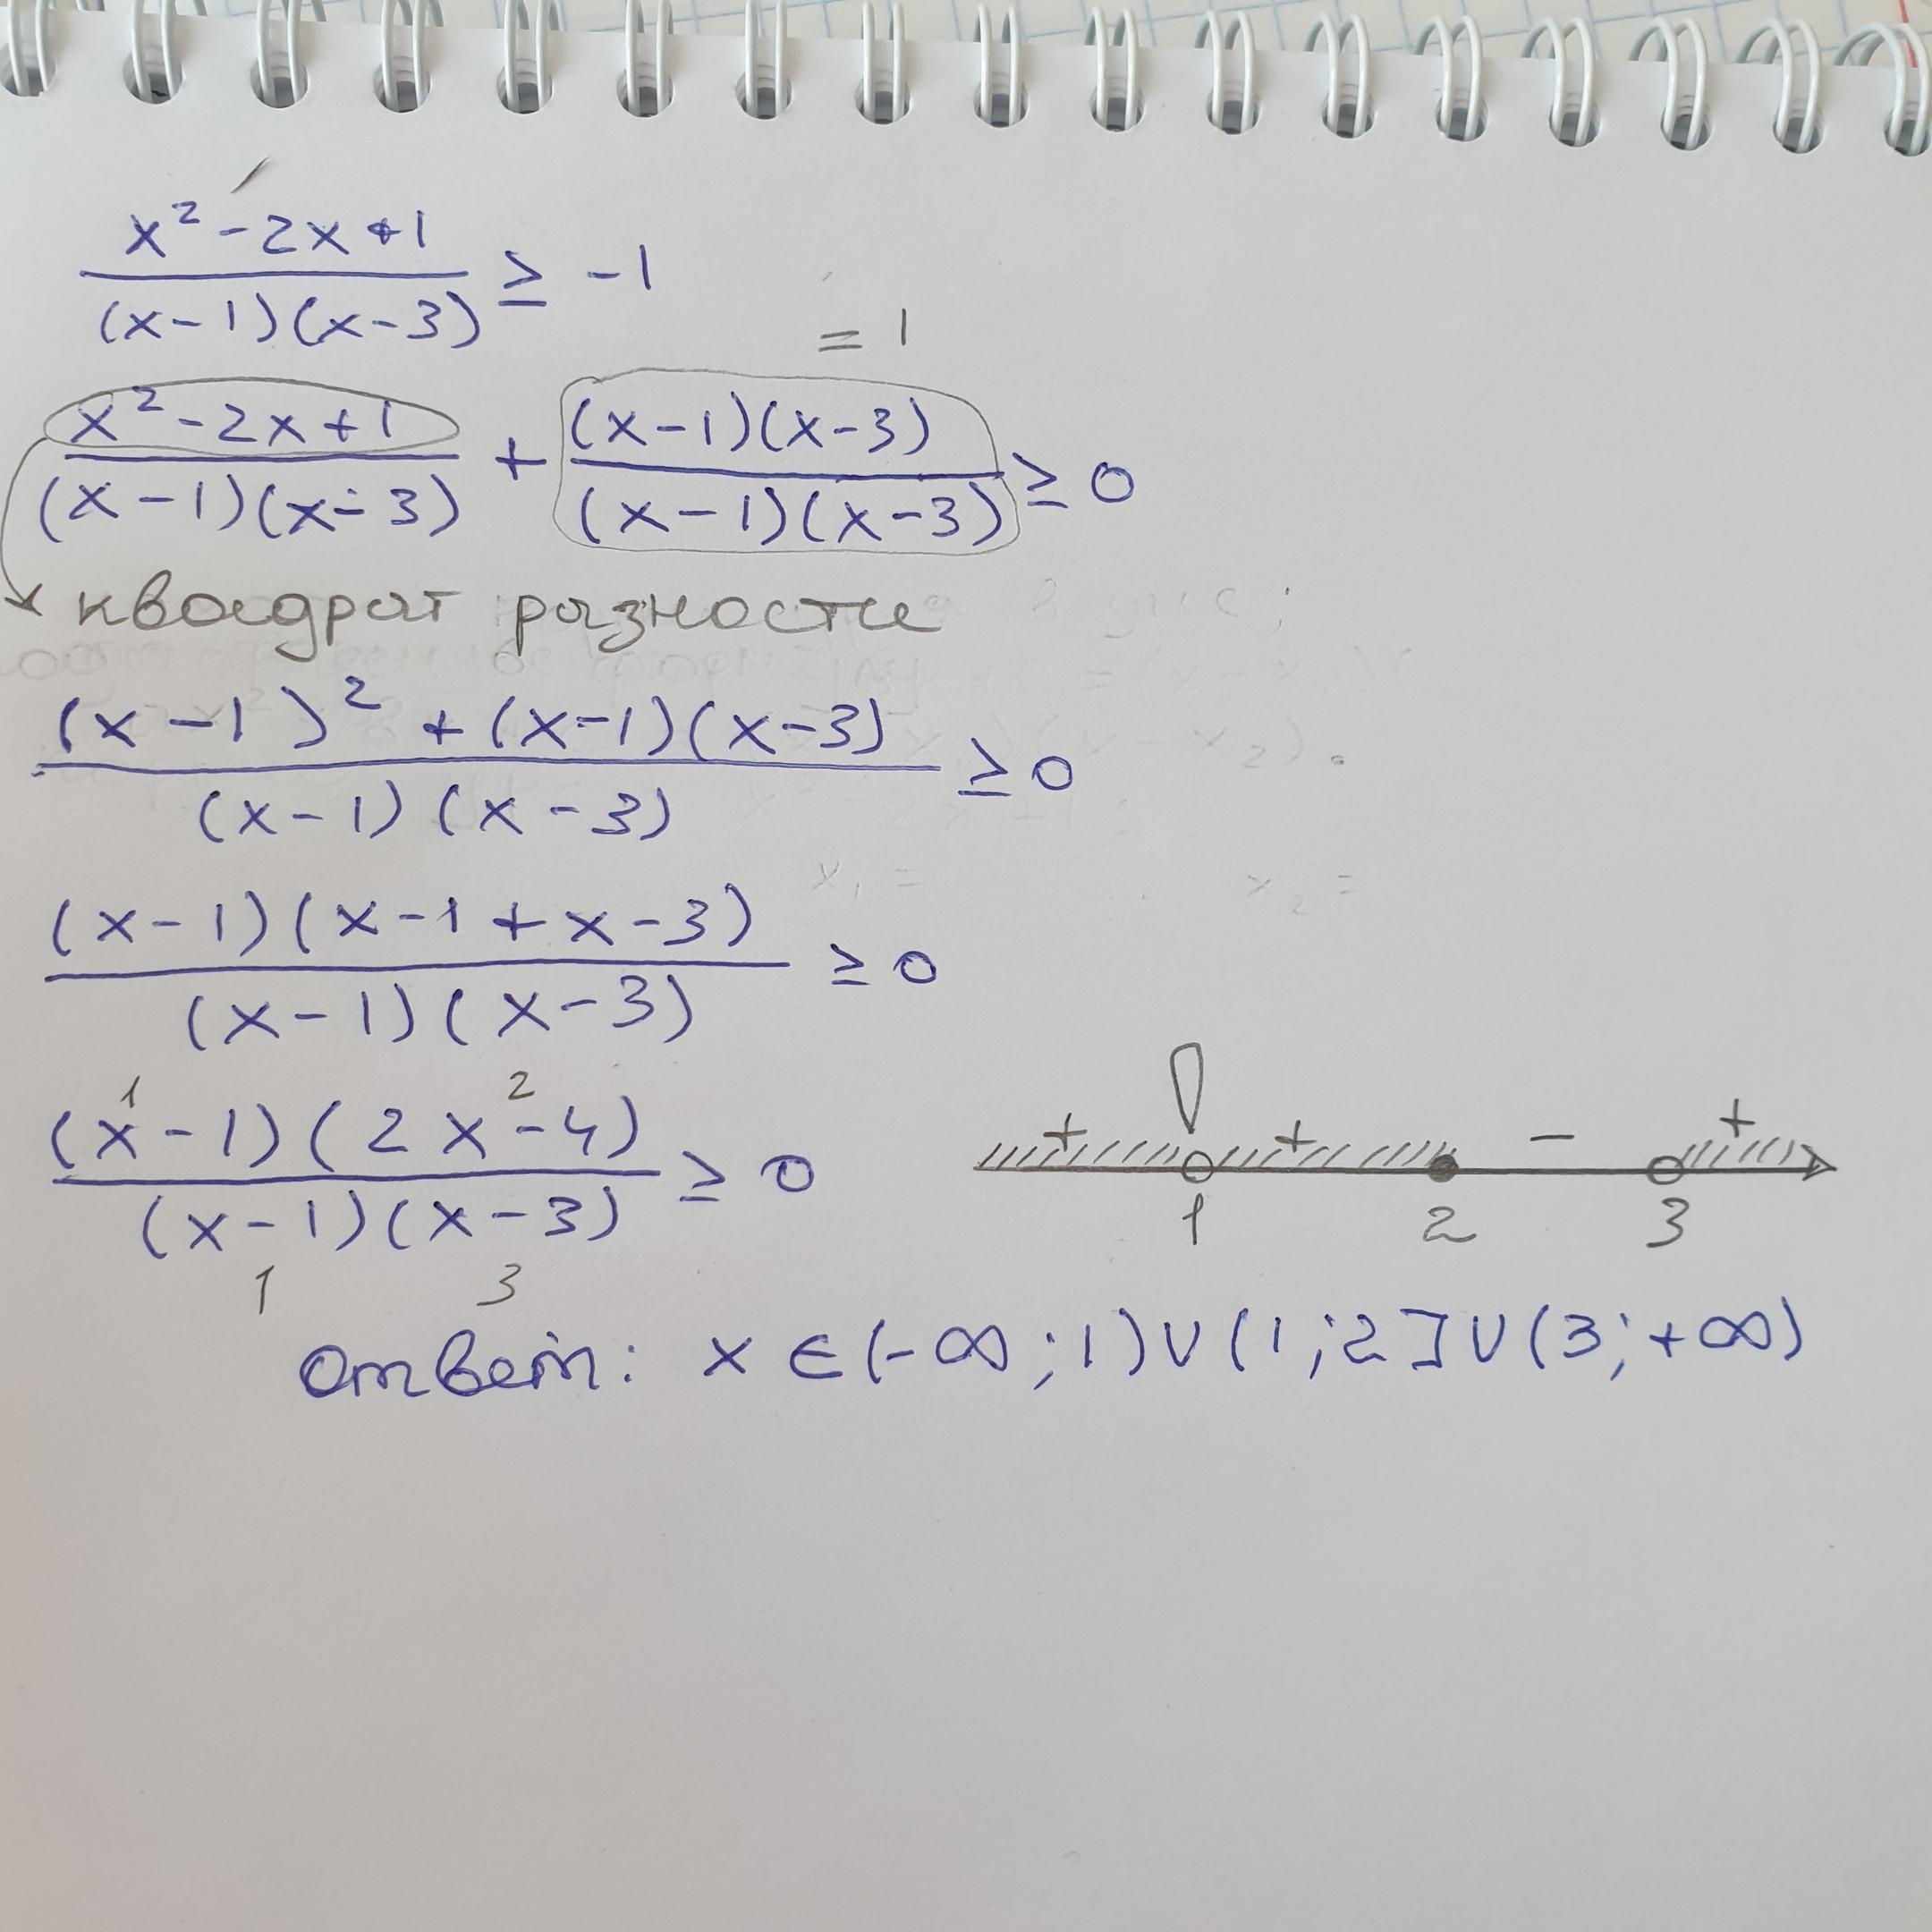 x² - 2x + 1
(x-1)(x-3)
≥ -1
= 1
x² - 2x + 1
(x-1)(x-3)
+
(x-1)(x-3)
(x-1)(x-3)
≥ 0
квадрат разности
(x-1)² + (x-1)(x-3)
(x-1)(x-3)
≥ 0
(x-1)(x-1+x-3)
(x-1)(x-3)
≥ 0
1 2
(x-1)(2x-4)
(x-1)(x-3)
≥ 0
1 3
+ + - +
1 2 3
ответ: x ∈ (-∞; 1) ∪ (1; 2] ∪ (3; +∞)